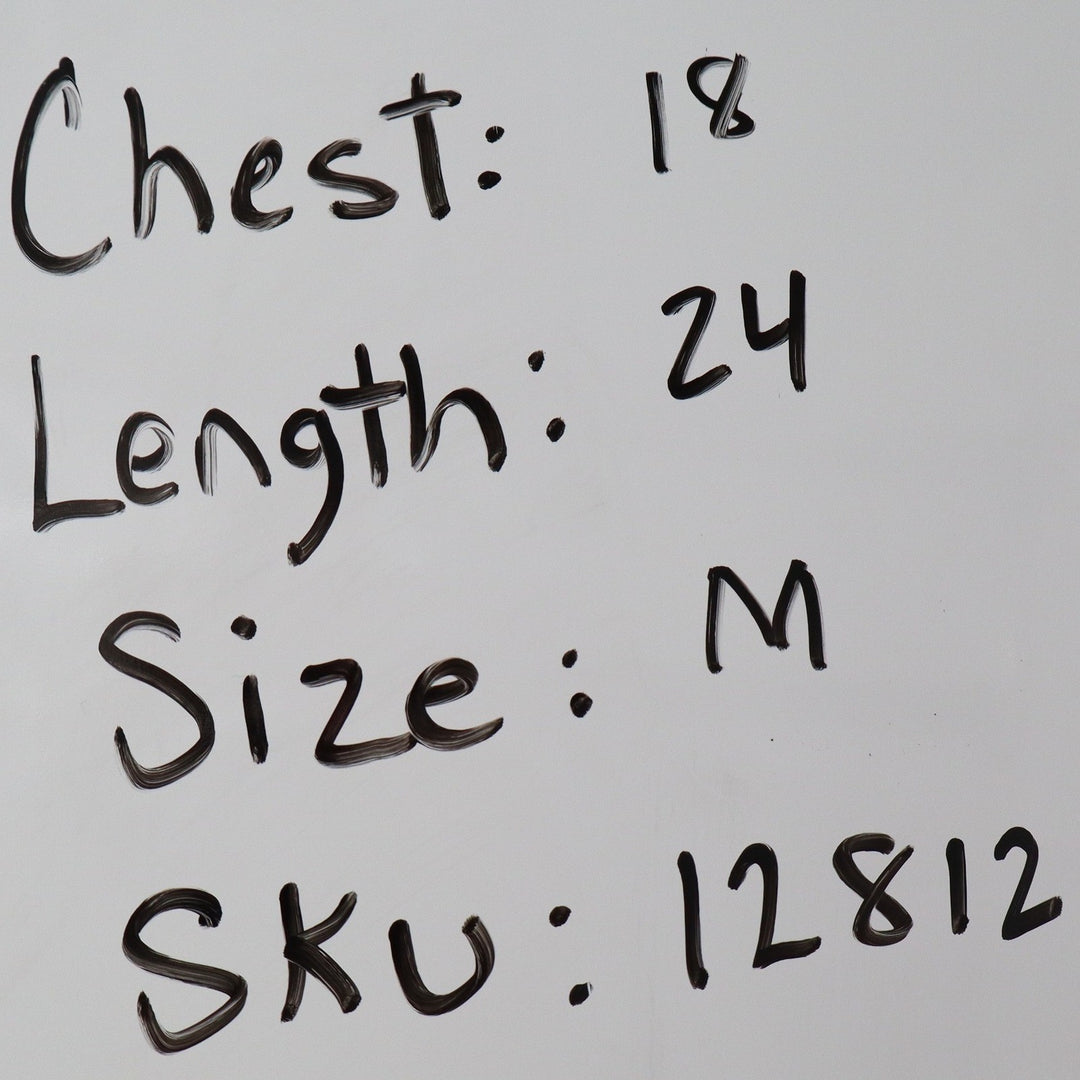 Chest: 18
Length: 24
Size: M
SKU: 12812